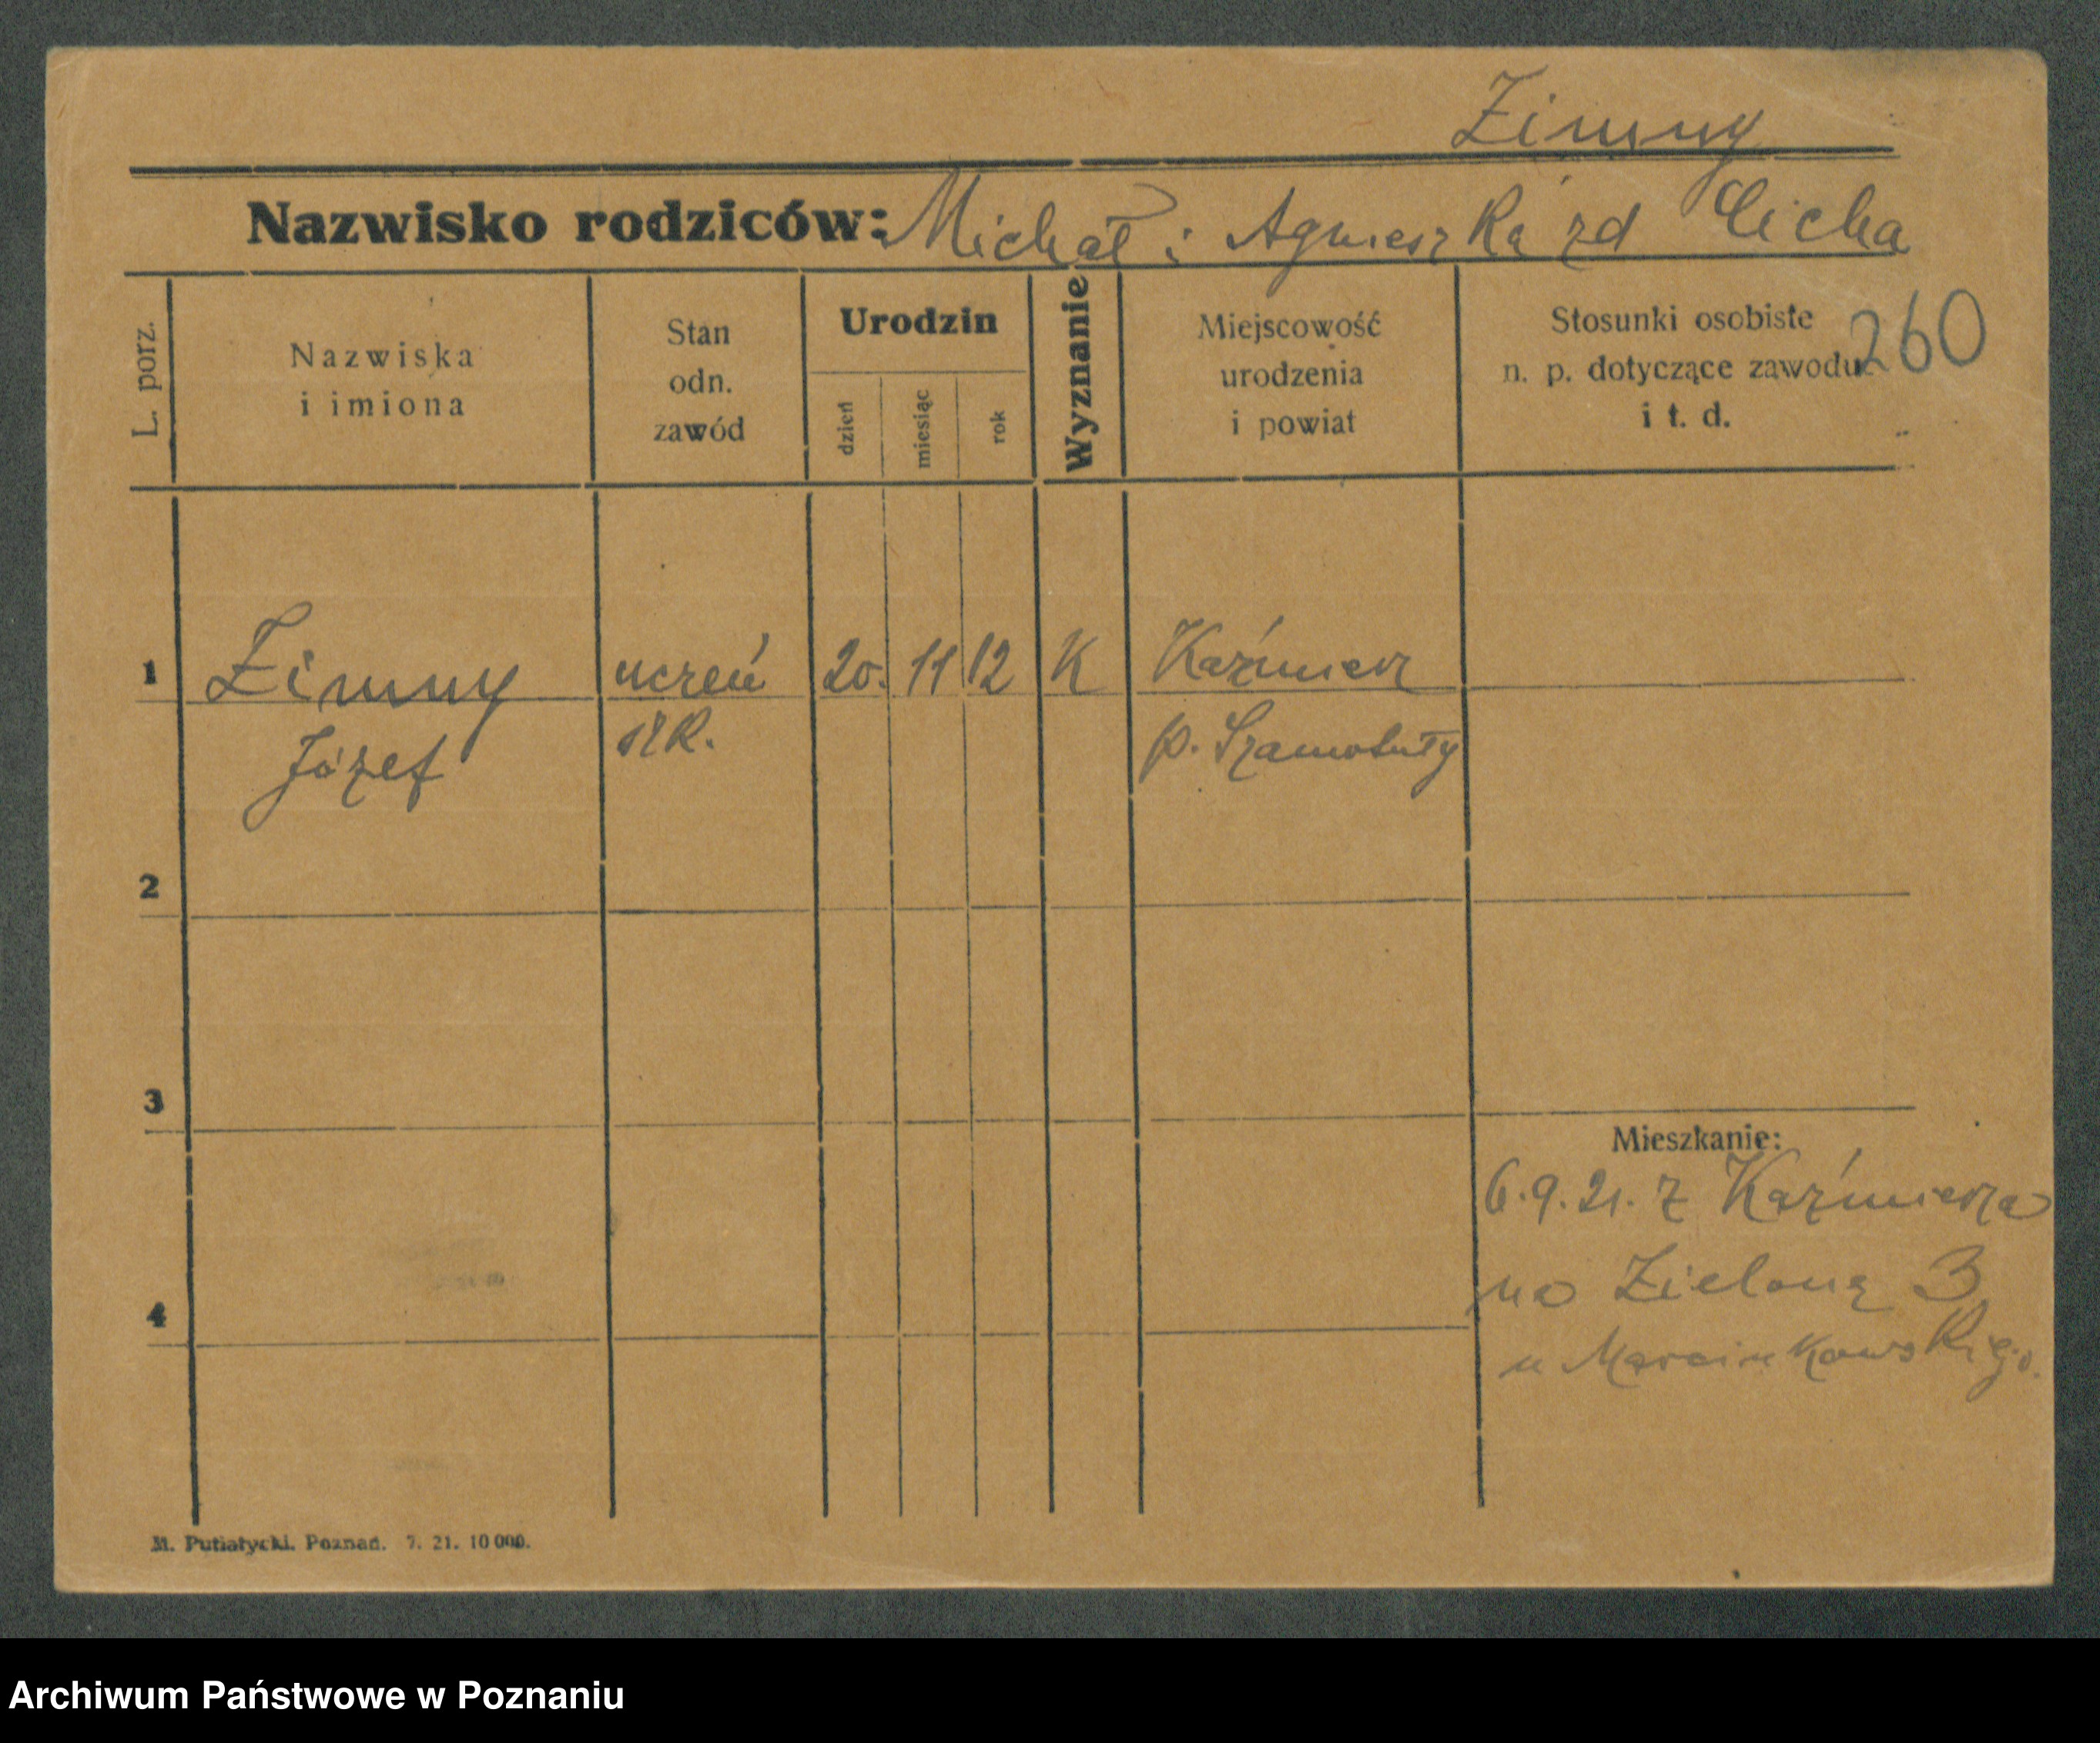 Zimny
Nazwisko rodziców: Michał i Agnieszka zd Cicha
L. porz.
Nazwiska
i imiona
Stan
odn.
zawód
Urodzin
dzień
miesiąc
rok
Wyznanie
Miejscowość
urodzenia
i powiat
Stosunki osobiste
n. p. dotyczące zawodu
i t. d.
260
1 Zimny uczeń 20. 11 12 K Kaźmierz
Józef p. Szamotuły
2
3
Mieszkanie:
6.9.21. z Kaźmierza
na Zieloną 3
4
u Marcinkowskiego.
M. Putiatycki. Poznań. 7. 21. 10 000.
Archiwum Państwowe w Poznaniu